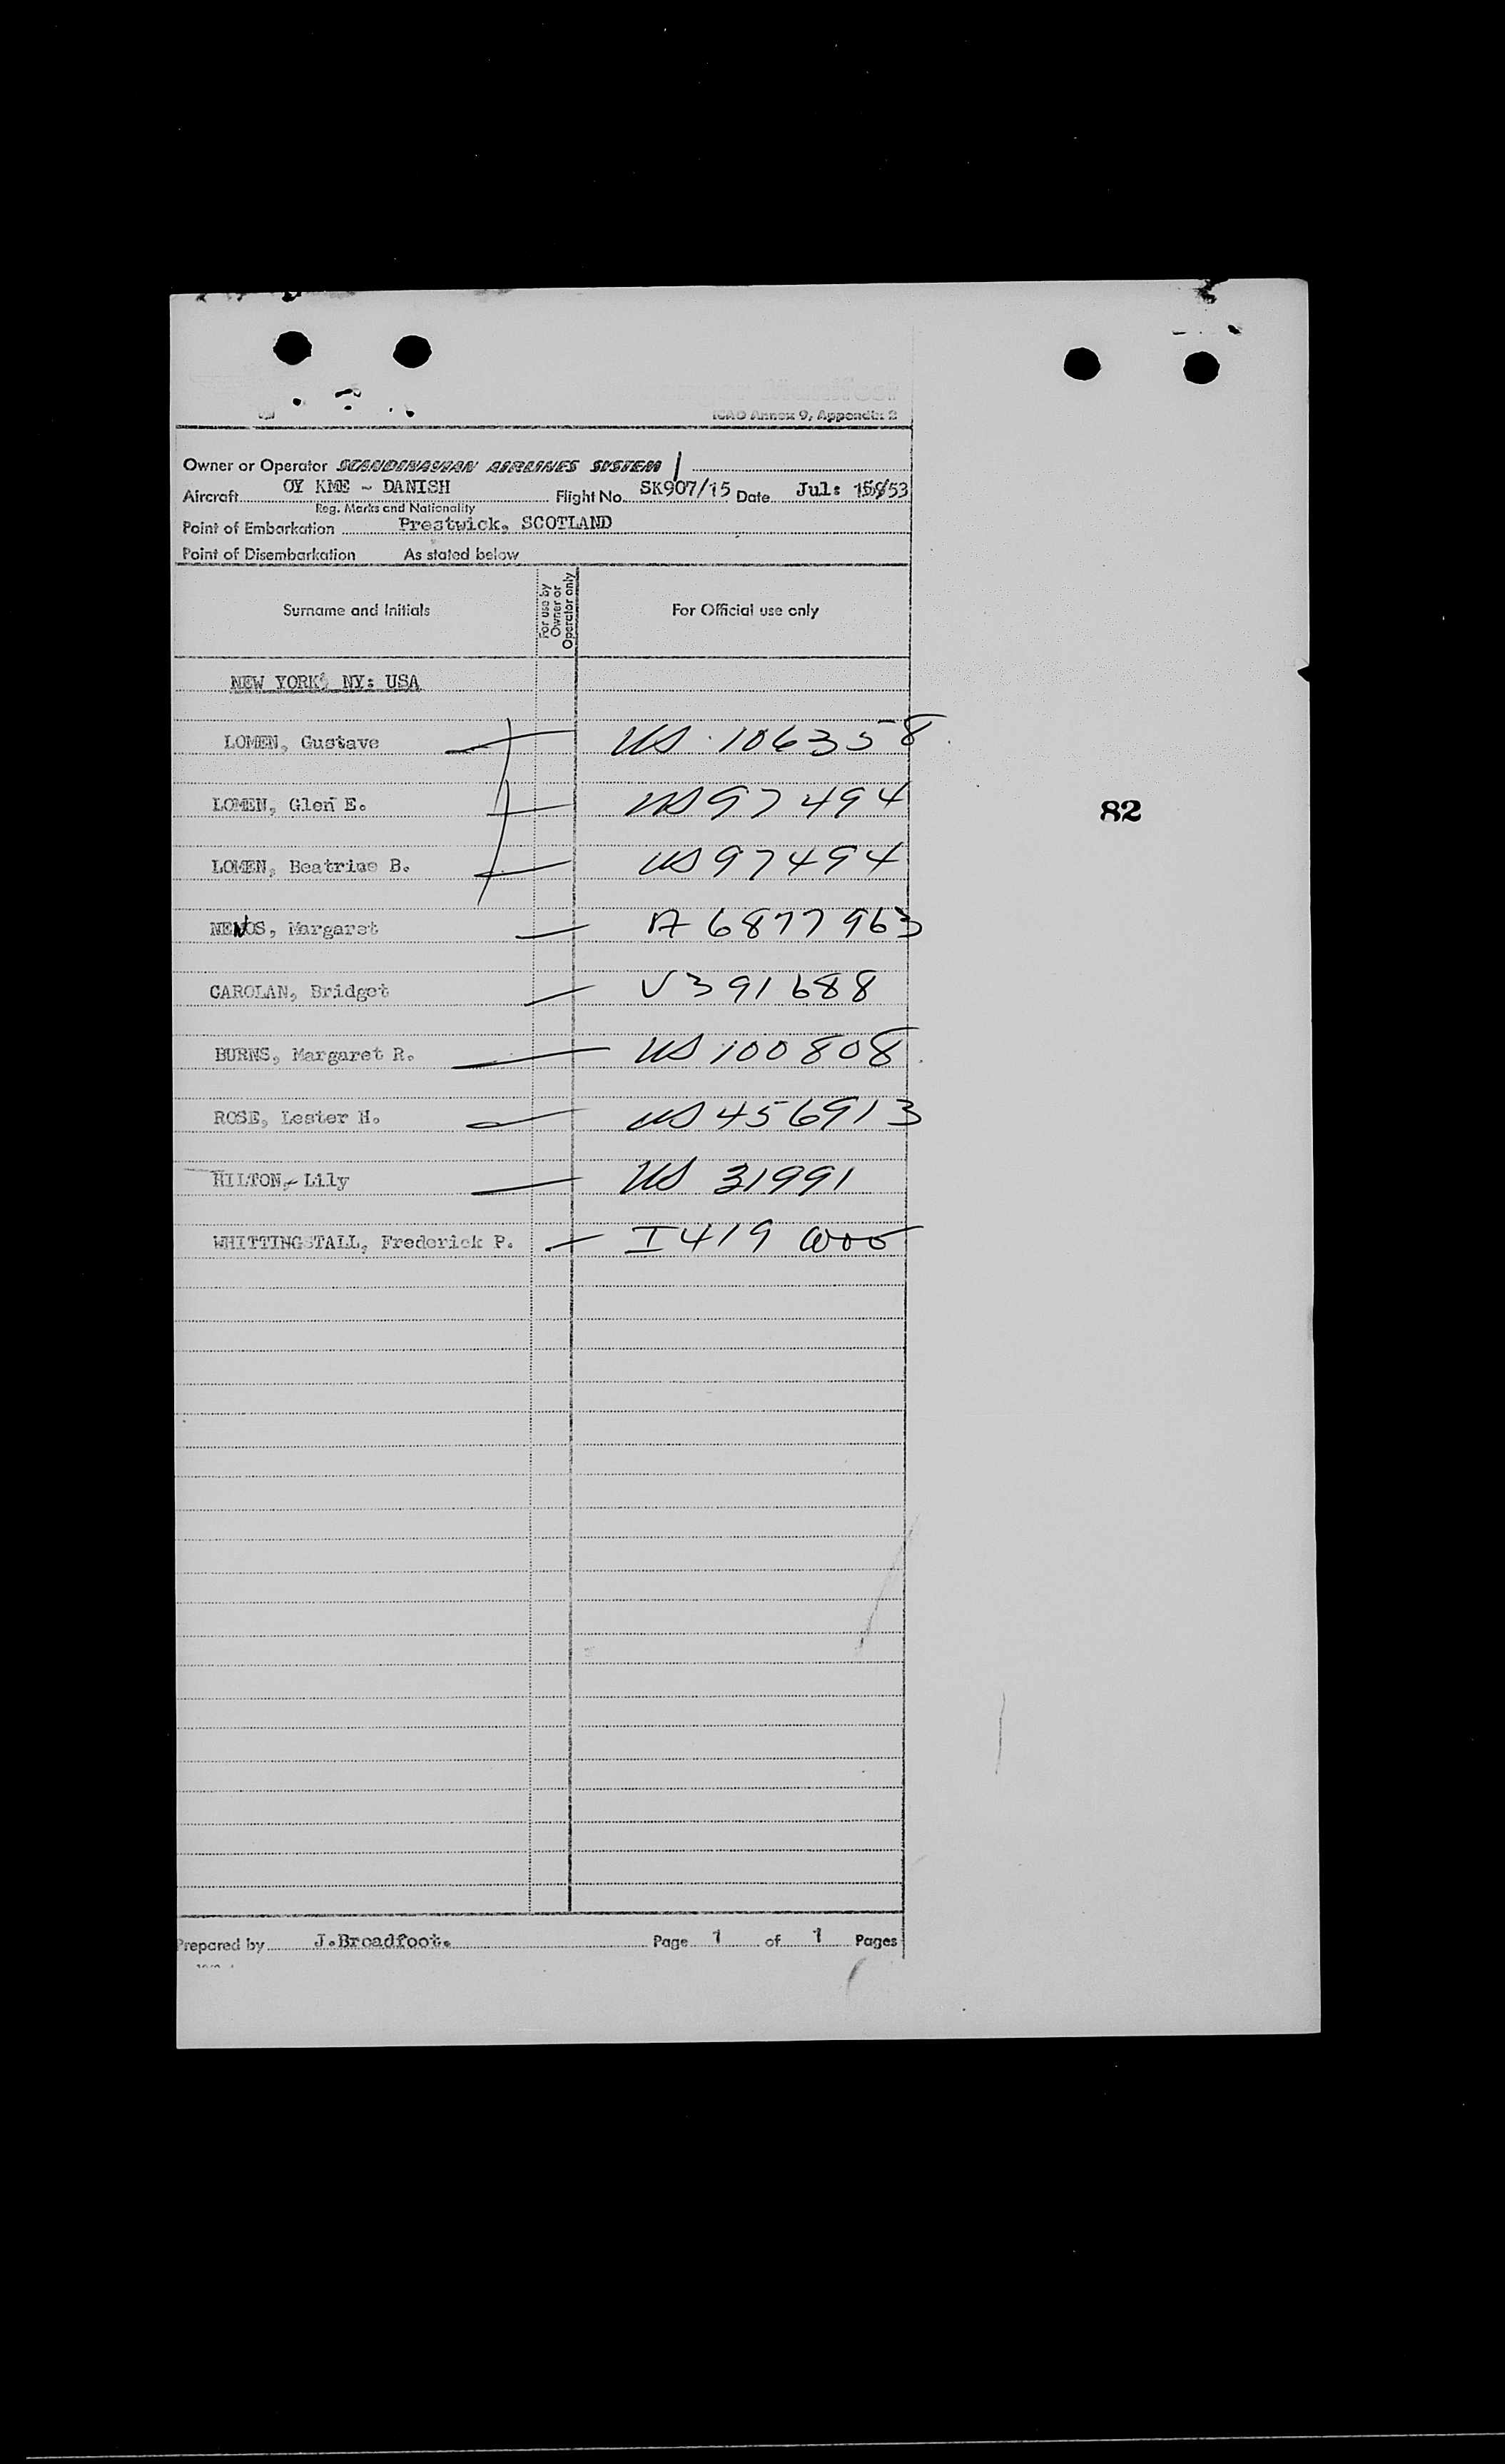 ICAO Annex 9, Appendix 2
Owner or Operator SCANDINAVIAN AIRLINES SYSTEM
Aircraft OY KME - DANISH Flight No. SK907/15 Date Jul: 15/53
Reg. Marks and Nationality
Point of Embarkation Prestwick, SCOTLAND
Point of Disembarkation As stated below
Surname and Initials
For use by Owner or Operator only
For Official use only
NEW YORK, NY: USA
LOMEN, Gustave US 106358
LOMEN, Glen E. US 97494
82
LOMEN, Beatrice B. US 97494
Margaret A 6877963
CAROLAN, Bridget V391688
BURNS, Margaret R. US 100808
ROSE, Lester H. US 456913
HILTON, Lily US 31991
WHITTINGSTALL, Frederick P. I419
Prepared by J.Broadfoot. Page 1 of 1 Pages